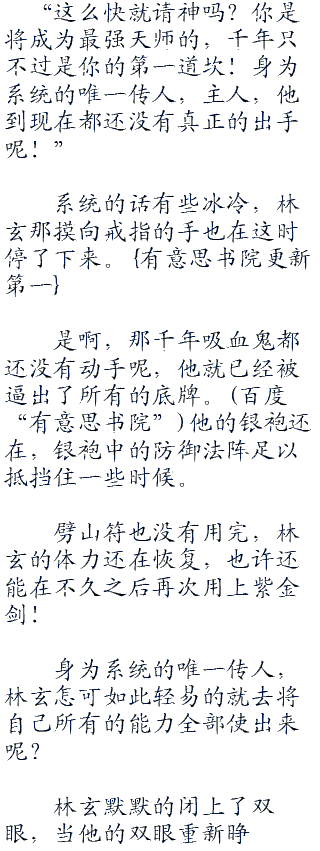 “这么快就请神吗？你是
将成为最强天师的，千年只
不过是你的第一道坎！身为
系统的唯一传人，主人，他
到现在都还没有真正的出手
呢！”
系统的话有些冰冷，林
玄那摸向戒指的手也在这时
停了下来。{有意思书院更新
第一}
是啊，那千年吸血鬼都
还没有动手呢，他就已经被
逼出了所有的底牌。(百度
“有意思书院”)他的银袍还
在，银袍中的防御法阵足以
抵挡住一些时候。
劈山符也没有用完，林
玄的体力还在恢复，也许还
能在不久之后再次用上紫金
剑！
身为系统的唯一传人，
林玄怎可如此轻易的就去将
自己所有的能力全部使出来
呢？
林玄默默的闭上了双
眼，当他的双眼重新睁